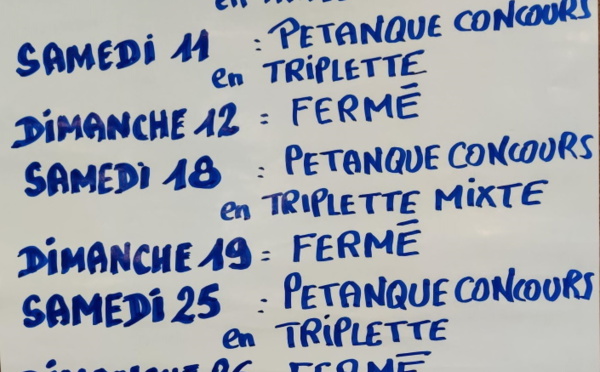 en TRIPLETTE
SAMEDI 11 : PETANQUE CONCOURS
en TRIPLETTE
DIMANCHE 12 : FERMÉ
SAMEDI 18 : PETANQUE CONCOURS
en TRIPLETTE MIXTE
DIMANCHE 19 : FERMÉ
SAMEDI 25 : PETANQUE CONCOURS
en TRIPLETTE
DIMANCHE 26 : FERMÉ